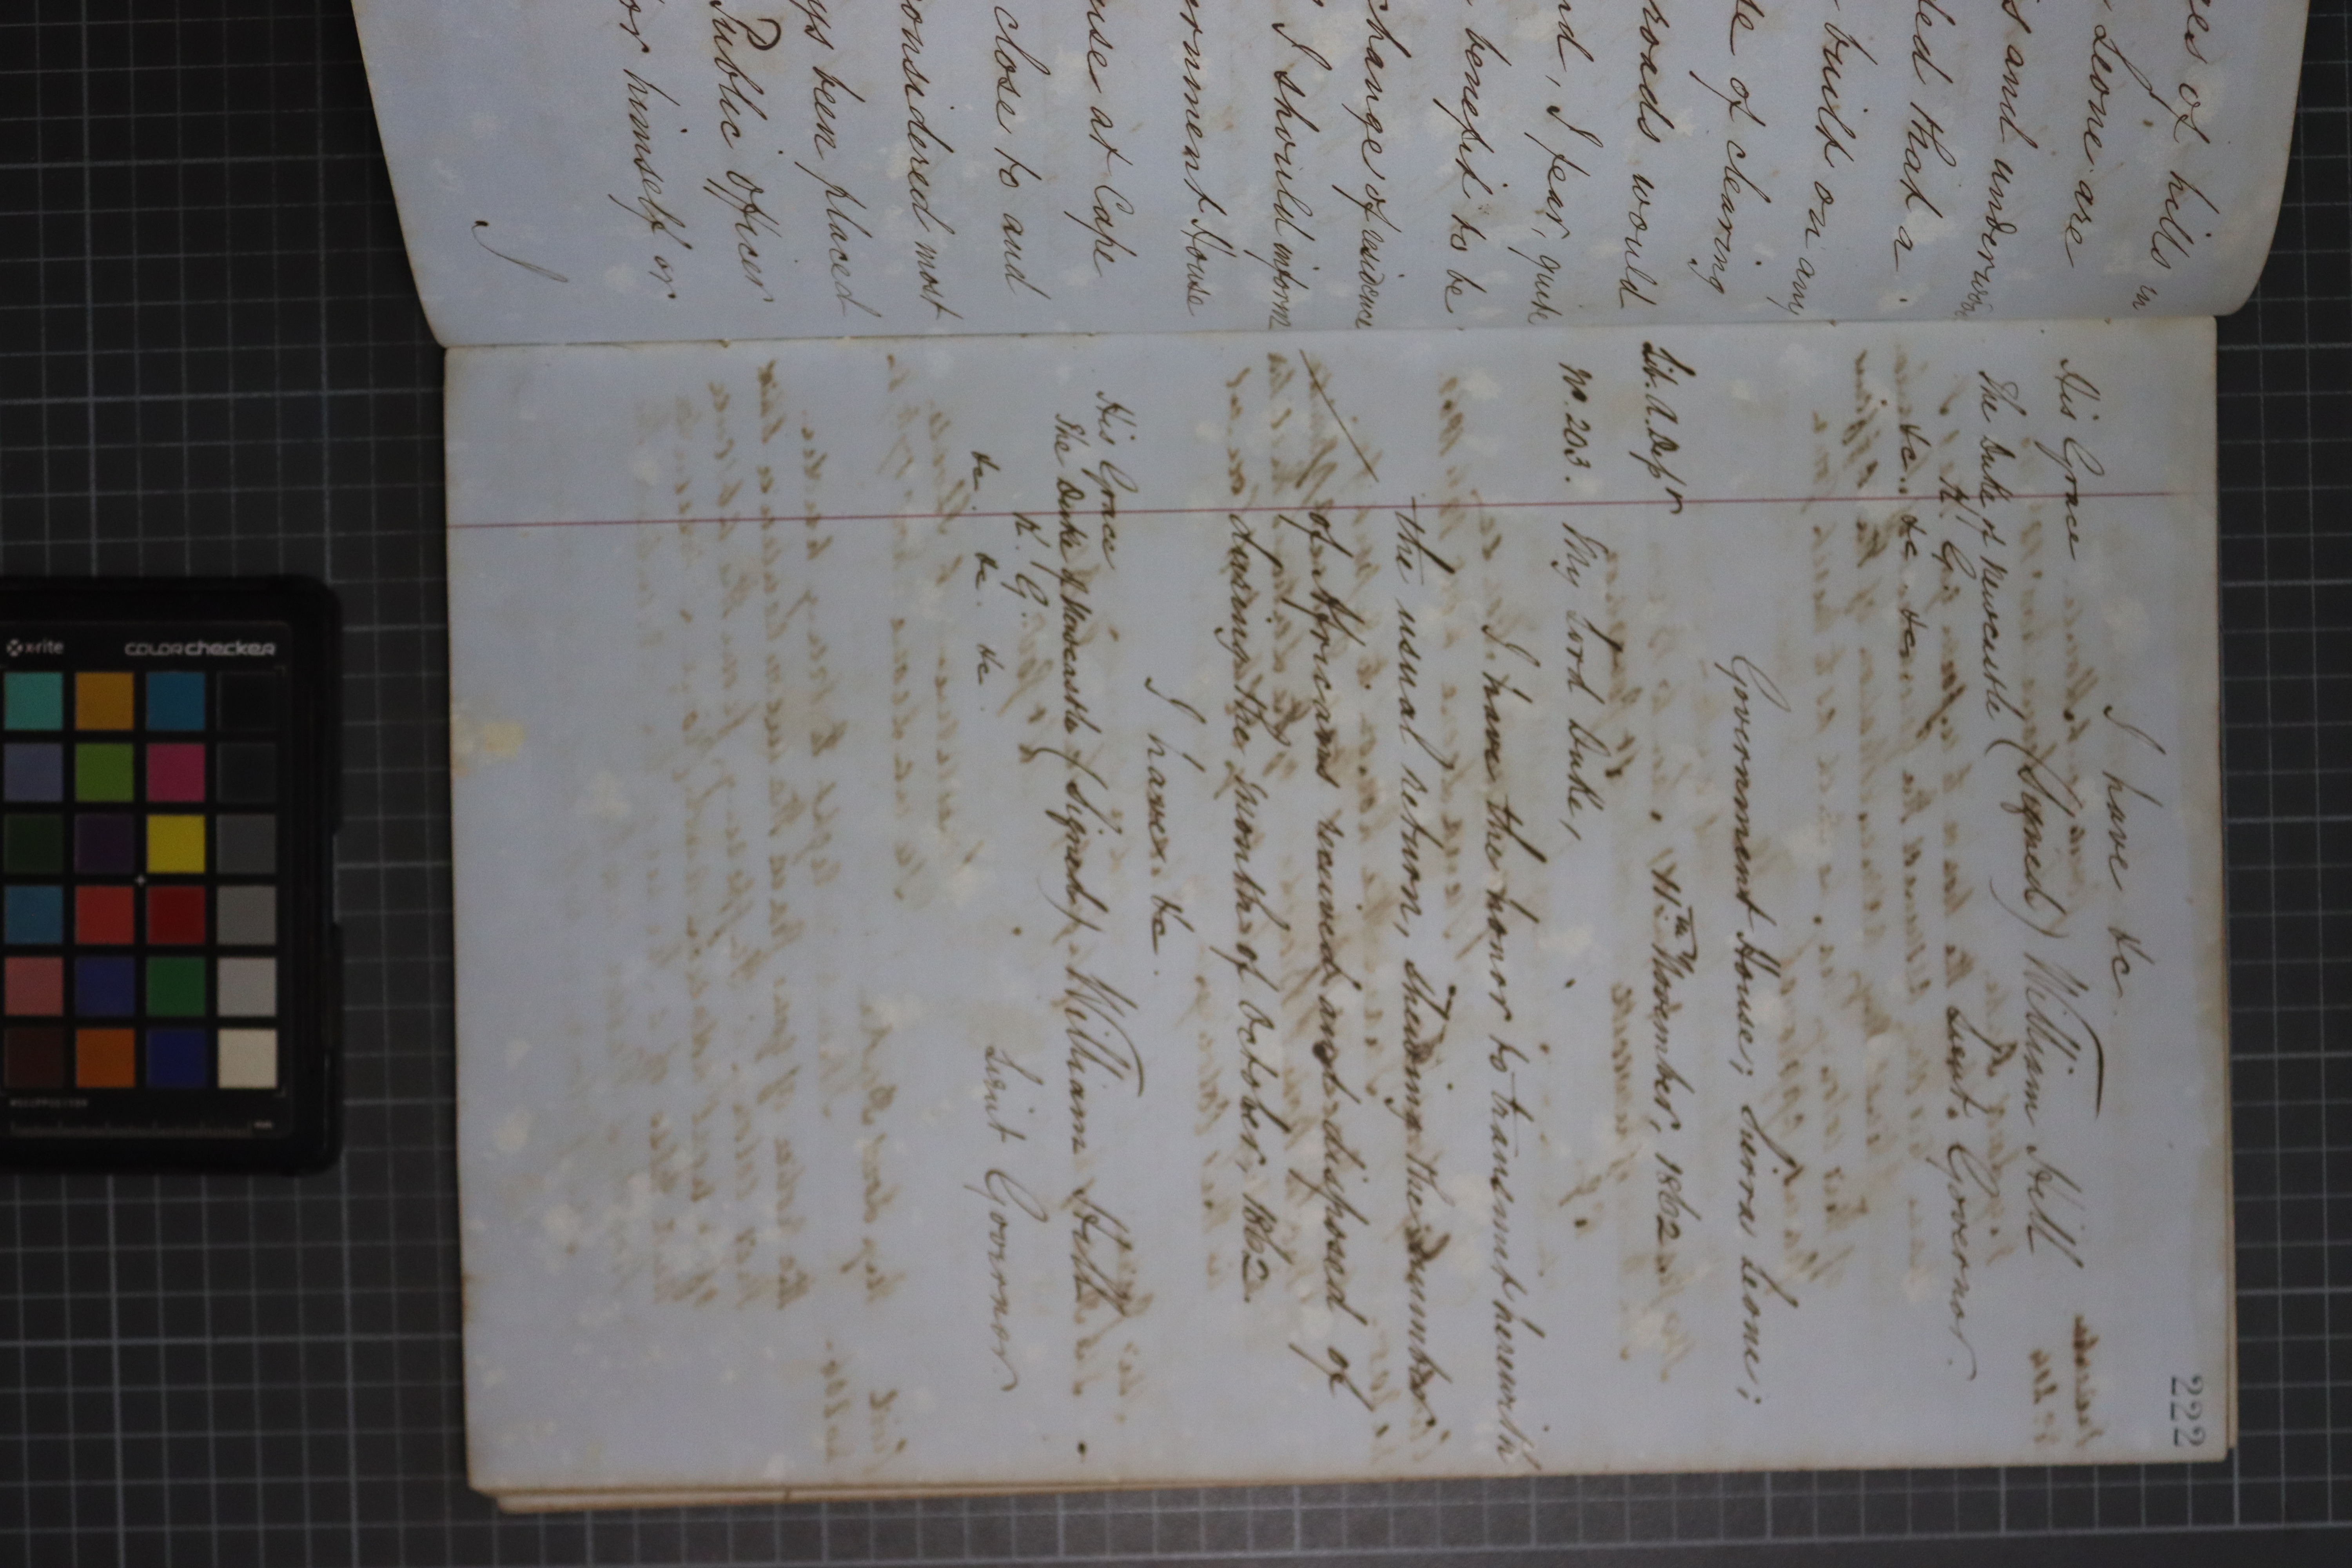 ges of hills in
Leone are
s and underwood
ded that a
build on any
se of clearing
roads would
nd, I fear, quite
benefit to be
change of residence
I should inform
ernment House
use at Cape
close to and
onsidered most
ys been placed
Public officer
or himself or
I
222
I have &c
His Grace
The Duke of Newcastle (Signed) William Hill
K. G. Lieut. Governor.
&c. &c. &c.
Government House; Sierra Leone;
11th November, 1862.
Lib. A. Dept
No. 203. My Lord Duke,
I have the honor to transmit herewith
the usual return, shewing the number
of Africans received and disposed of
during the month of October, 1862.
I have. &c.
His Grace
The Duke of Newcastle (Signed) William Hill
K. G.
&c. &c. &c Lieut Governor
x-rite colorchecker